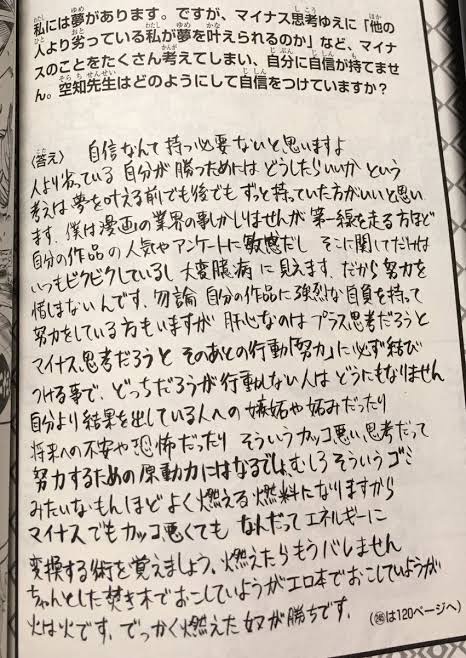 私には夢があります。ですが、マイナス思考ゆえに「他の
人より劣っている私が夢を叶えられるのか」など、マイナ
スのことをたくさん考えてしまい、自分に自信が持てませ
ん。空知先生はどのようにして自信をつけていますか？
〈答え〉 自信なんて持つ必要ないと思いますよ
人より劣っている自分が勝つためにはどうしたらいいかという
考えは夢を叶える前でも後でもずっと持っていた方がいいと思い
ます。僕は漫画の業界の事しかしりませんが第一線を走る方ほど
自分の作品の人気やアンケートに敏感だし そこに関してだけは
いつもビクビクしているし大変臆病に見えます。だから努力を
惜しまないんです。勿論 自分の作品に強烈な自負を持って
努力をしている方もいますが 肝心なのはプラス思考だろうと
マイナス思考だろうと そのあとの行動「努力」に必ず結び
つける事で、どっちだろうが行動しない人はどうにもなりません
自分より結果を出している人への嫉妬や妬みだったり
将来への不安や恐怖だったり そういうカッコ悪い思考だって
努力するための原動力にはなるでしょ、むしろそういうゴミ
みたいなもんほどよく燃える燃料になりますから
マイナスでもカッコ悪くても なんだってエネルギーに
変換する術を覚えましょう。燃えたらもうバレません
ちゃんとした焚き木でおこしていようがエロ本でおこしていようが
火は火です。でっかく燃えた奴が勝ちです。
(は120ページへ)